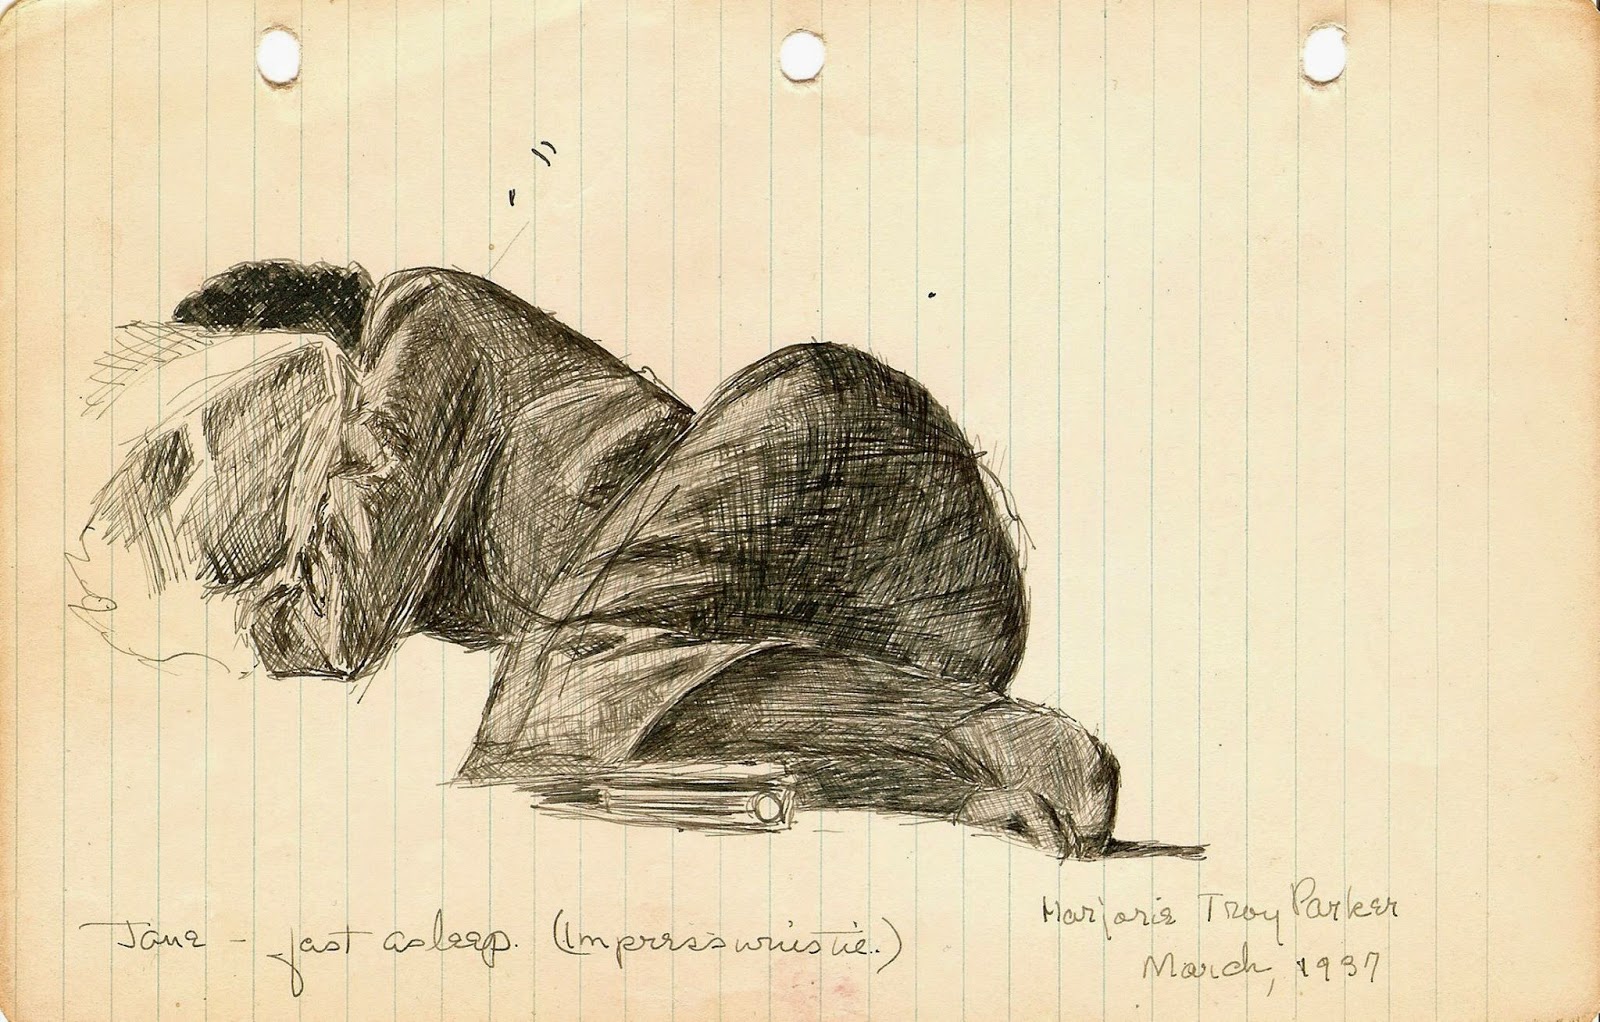 Jane - fast asleep. (Impresswnistic.)
Marjorie Troy Parker
March, 1937